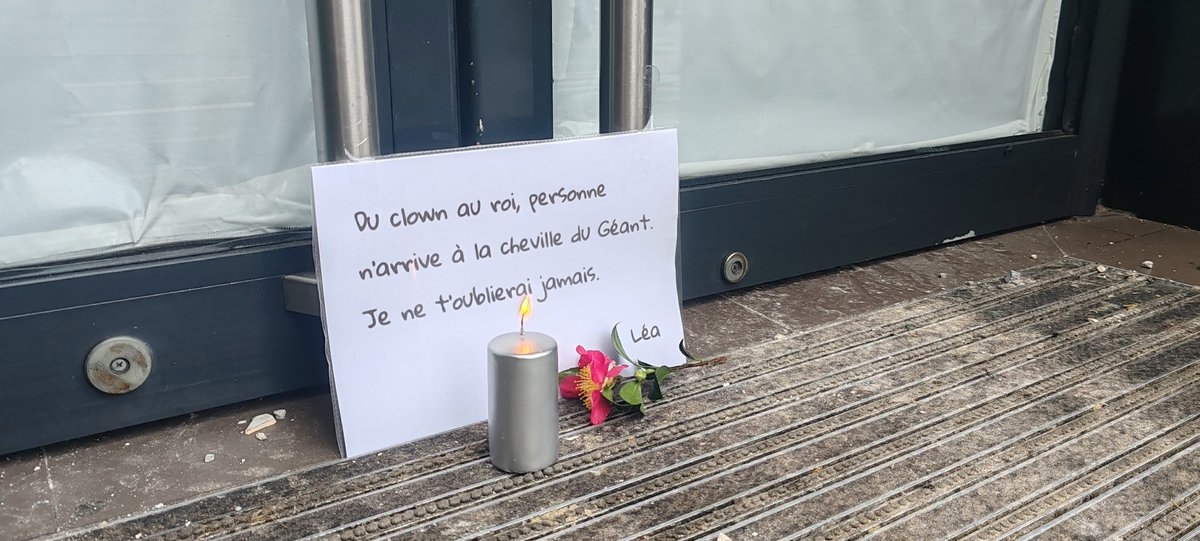 Du clown au roi, personne
n'arrive à la cheville du Géant.
Je ne t'oublierai jamais.
Léa